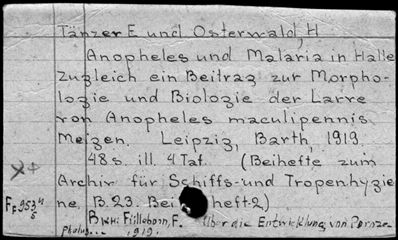 Tänzer E und Osterwald, H
Anopheles und Malaria in Halle
zugleich ein Beitrag zur Morpho-
logie und Biologie der Larve
von Anopheles maculipennis
Meigen. Leipzig, Barth, 1919.
48 s. ill. 4 Taf. (Beihefte zum
Archiv für Schiffs- und Tropenhygie
ne, B. 23. Bei heft 2)
Fülleborn, F. Über die Entwicklung von
1919.